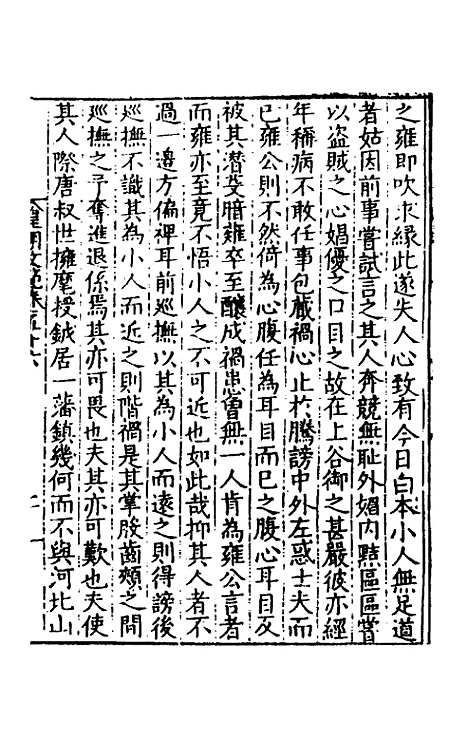 之雍即吹求縁此遂失人心致有今日白本小人無足道
者姑因前事嘗試言之其人奔競無恥外媚内黠區區嘗
以盗賊之心娼優之口目之故在上谷御之甚嚴彼亦經
年稱病不敢任事包藏禍心止於騰謗中外左惑士夫而
已雍公則不然倚為心腹任為耳目而巳之腹心耳目反
被其潜安暗雍卒至釀成禍患曾無一人肯為雍公言者
而雍亦至竟不悟小人之不可近也如此哉抑其人者不
過一邉方偏裨耳前廵撫以其為小人而逺之則得謗後
廵撫不識其為小人而近之則階禍是其掌股齒頰之間
廵撫之予奪進退係焉其亦可畏也夫其亦可歎也夫使
其人際唐叔世擁麾授鉞居一藩鎮幾何而不與河北山
皇明文範卷